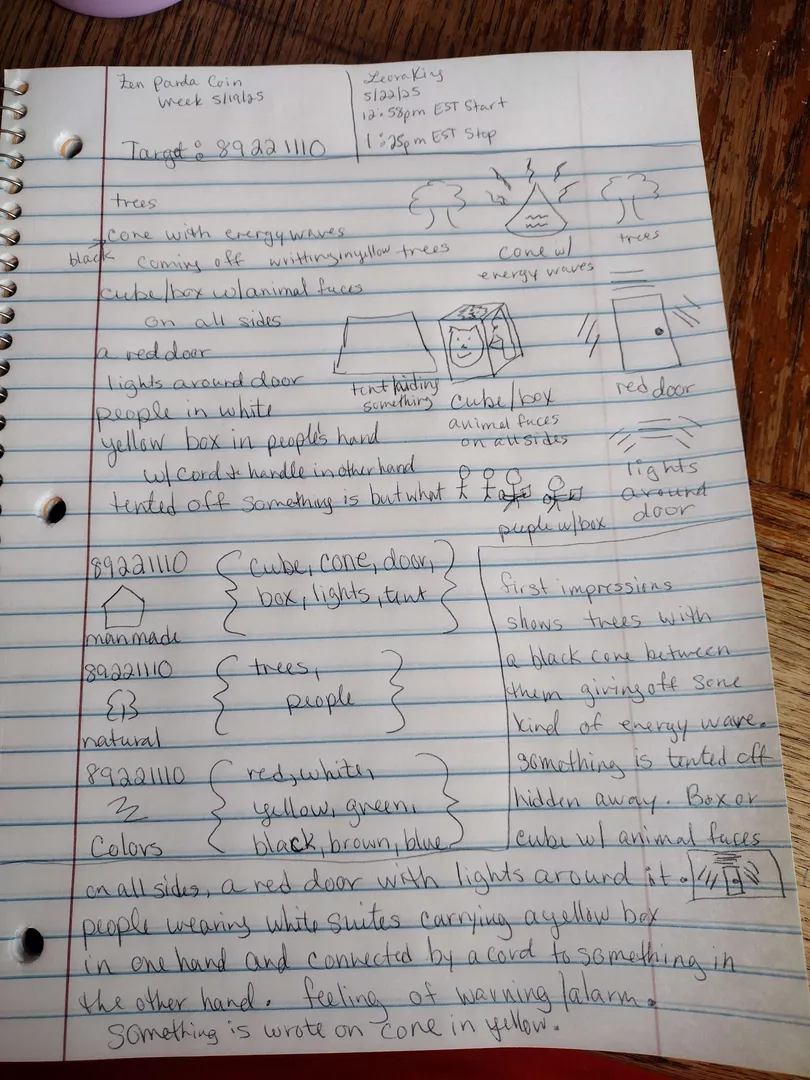 Zen Panda Coin
Week 5/19/25
LeoraKing
5/22/25
12:58pm EST Start
1:25pm EST Stop
Target: 89221110
trees
cone with energy waves
black
coming off writting in yellow trees
cube/box w/animal faces
on all sides
a red door
lights around door
people in white
yellow box in people's hand
w/ cord & handle in other hand
tented off something is but what
cone w/
energy waves
trees
tent hiding
something
cube/box
animal faces
on all sides
red door
lights
around
door
people w/box
89221110
manmade
cube, cone, door,
box, lights, tent
89221110
natural
trees,
people
89221110
Colors
red, white,
yellow, green,
black, brown, blue
first impressions
shows trees with
a black cone between
them giving off some
kind of energy wave.
something is tented off
hidden away. Box or
cube w/ animal faces
on all sides, a red door with lights around it.
people wearing white suites carrying a yellow box
in one hand and connected by a cord to something in
the other hand. feeling of warning/alarm.
Something is wrote on cone in yellow.